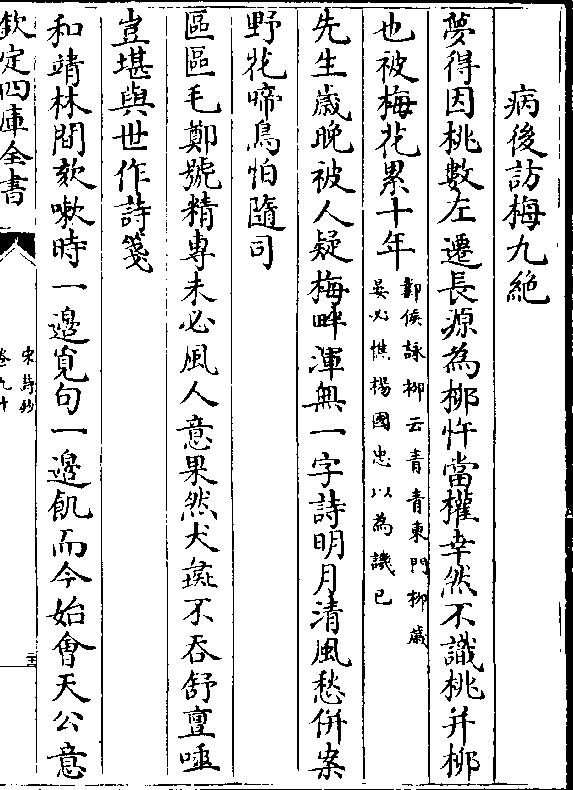 病後訪梅九絶
夢得因桃數左遷長源為柳忤當權幸然不識桃并柳
也被梅花累十年
鄴侯詠柳云青青東門柳歲
晏必憔楊國忠以為譏已
先生歲晚被人疑梅畔渾無一字詩明月清風愁併案
野花啼鳥怕隨司
區區毛鄭號精專未必風人意果然犬彘不吞舒亶唾
豈堪與世作詩箋
和靖林間欬嗽時一邊覓句一邊飢而今始會天公意
欽定四庫全書
宋詩鈔
卷九十